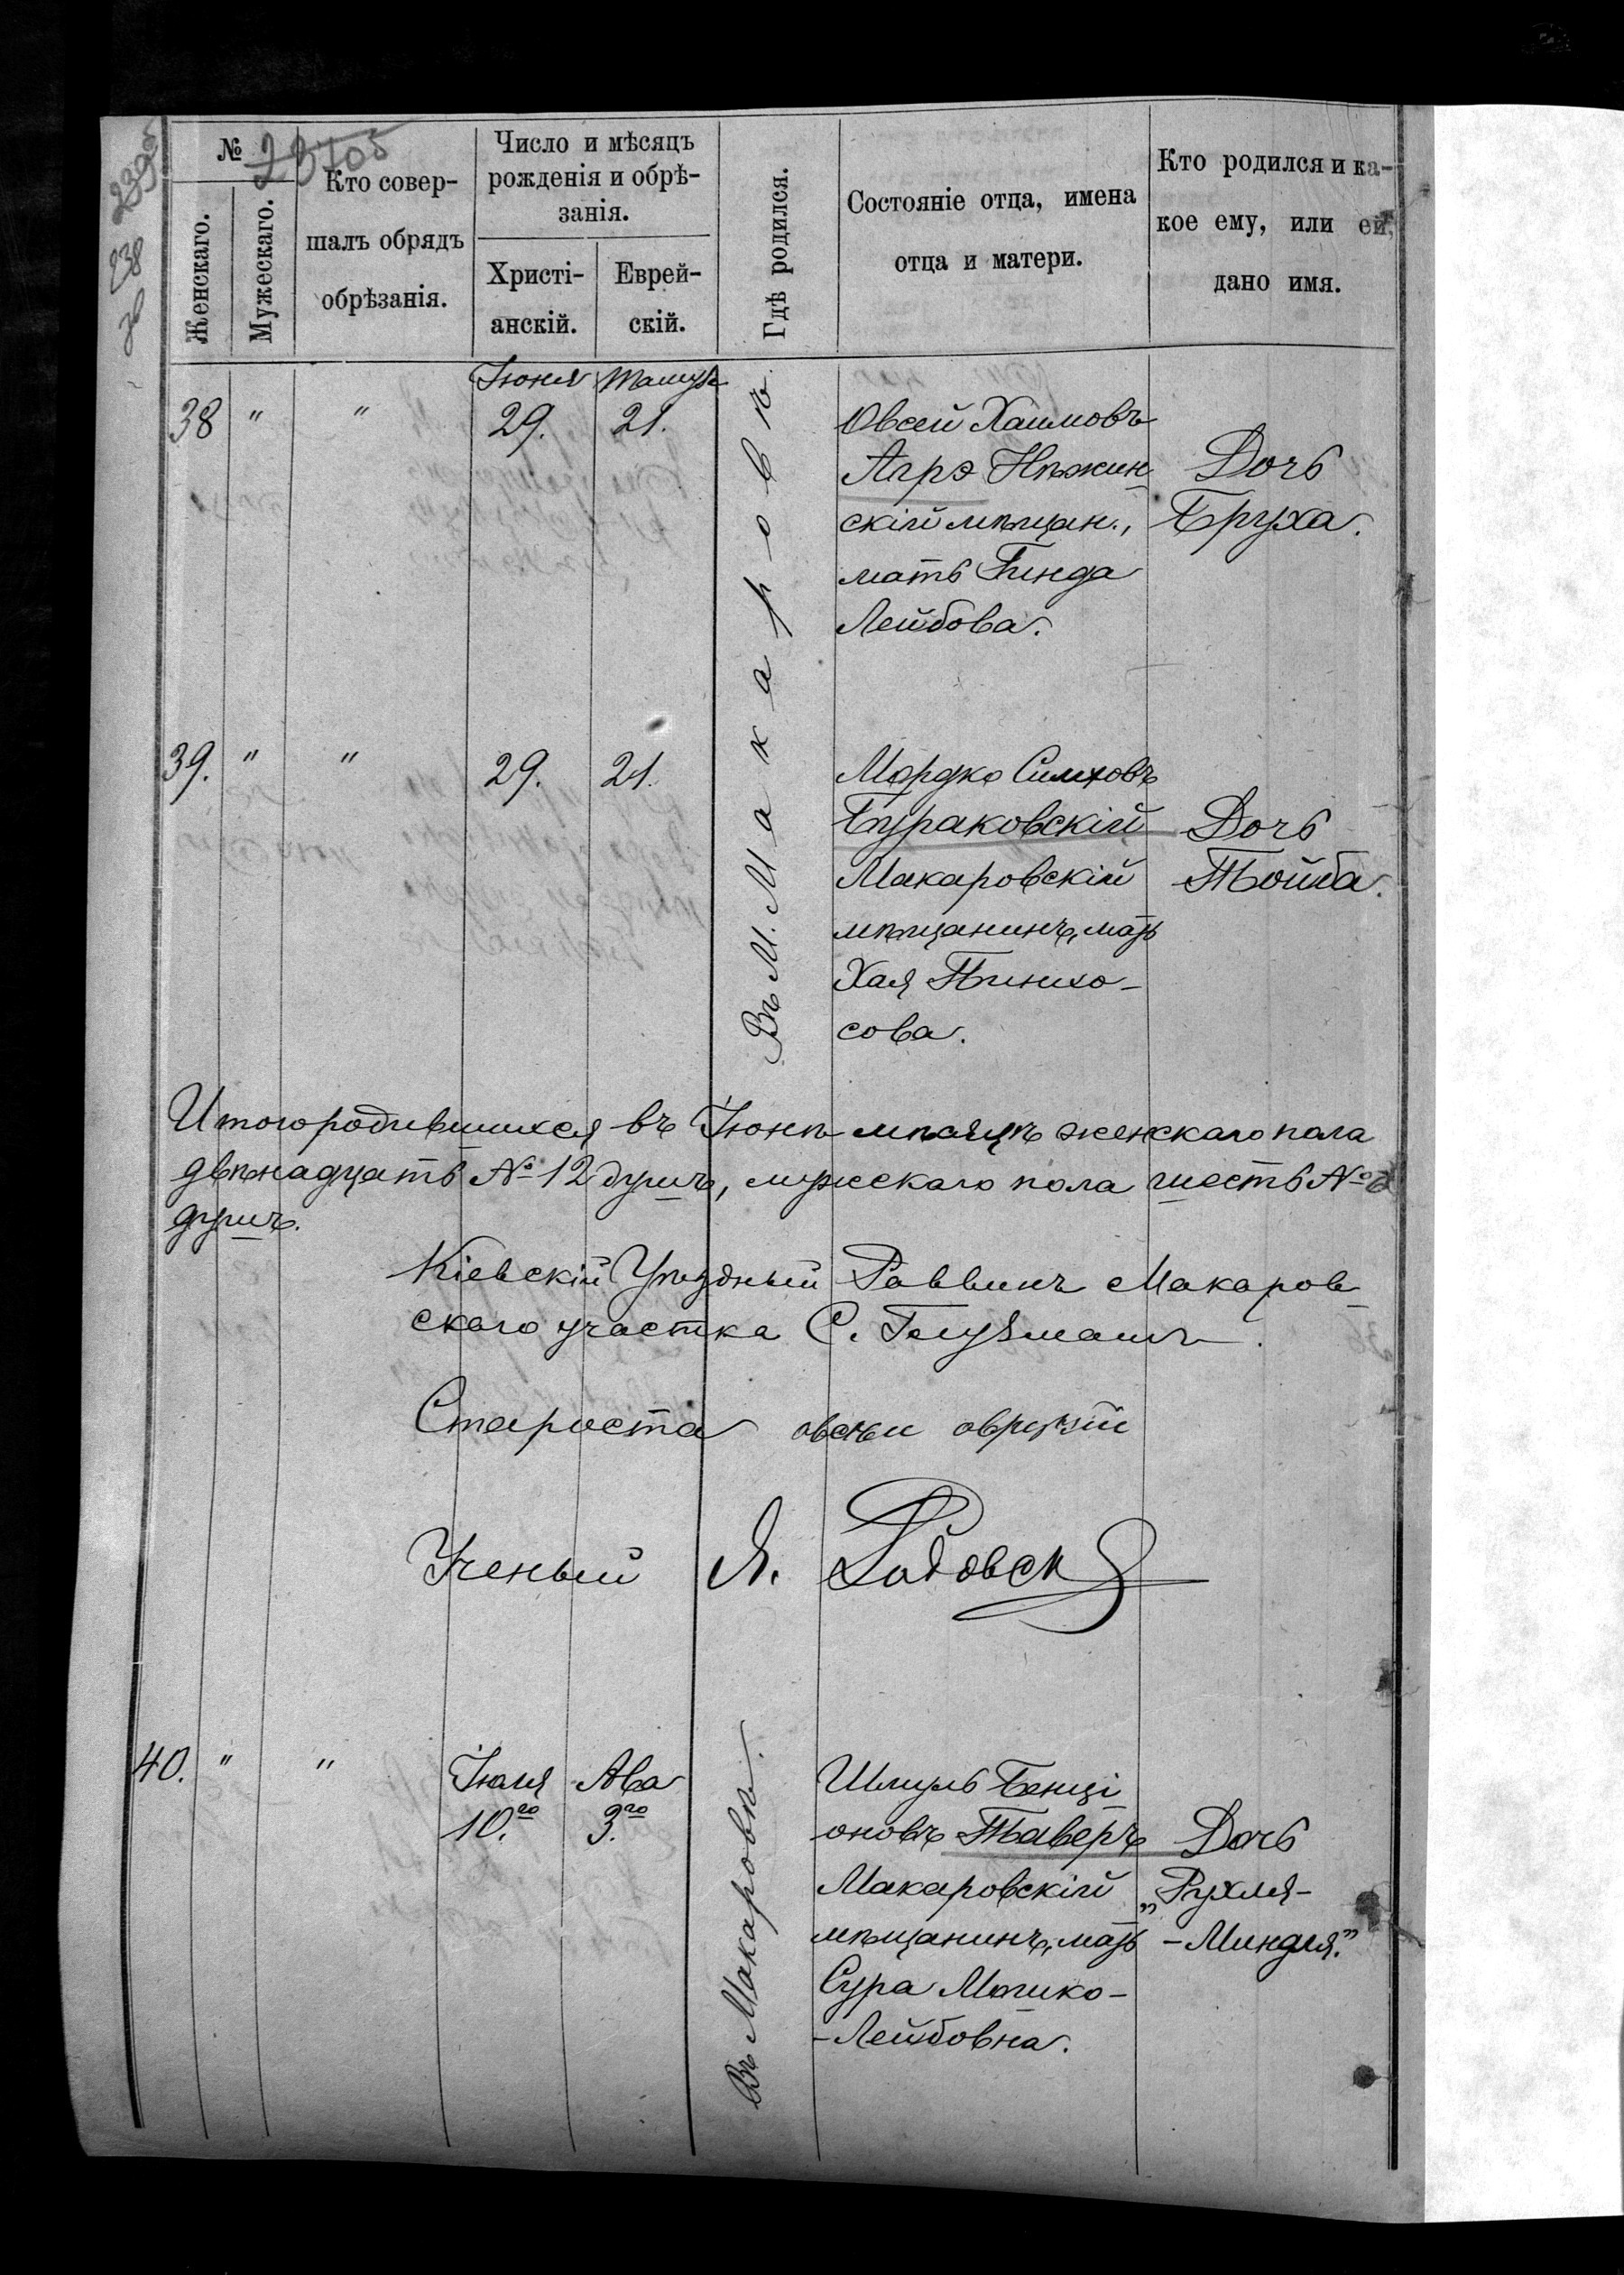 № 23705
Женскаго.
Мужескаго.
Кто совер-
шалъ обрядъ
обрѣзанія.
Число и мѣсяцъ
рожденія и обрѣ-
занія.
Христі-
анскій.
Еврей-
скій.
Гдѣ родился.
Состояніе отца, имена
отца и матери.
Кто родился и ка-
кое ему, или ей,
дано имя.
38 " "
Іюня
29.
Тамуза
21.
Въ М. Макаровѣ
Овсей Хаимовъ
Агрэ Нѣжин-
скій мѣщан.,
мать Гинда
Лейбова.
Дочь
Бруха.
39. " " 29. 21.
Мордко Симховъ
Бураковскій
Макаровскій
мѣщанинъ, мать
Хая Пинхо-
сова.
Дочь
Тойба.
Итого родившихся въ Іюнѣ мѣсяцѣ женскаго пола
двѣнадцать № 12 душъ, мужескаго пола шесть № 6
душъ.
Кіевскій Уѣздный Раввинъ Макаров-
скаго участка С.
Староста
Ученый Я.
40. " "
Іюля
10.го
Ава
3.го
Въ Макаровѣ.
Шмуль Бенці
оновъ Таверъ
Макаровскій
мѣщанинъ, мать
Сура Мошко-
-Лейбовна.
Дочь
„Рухля-
-Миндля."